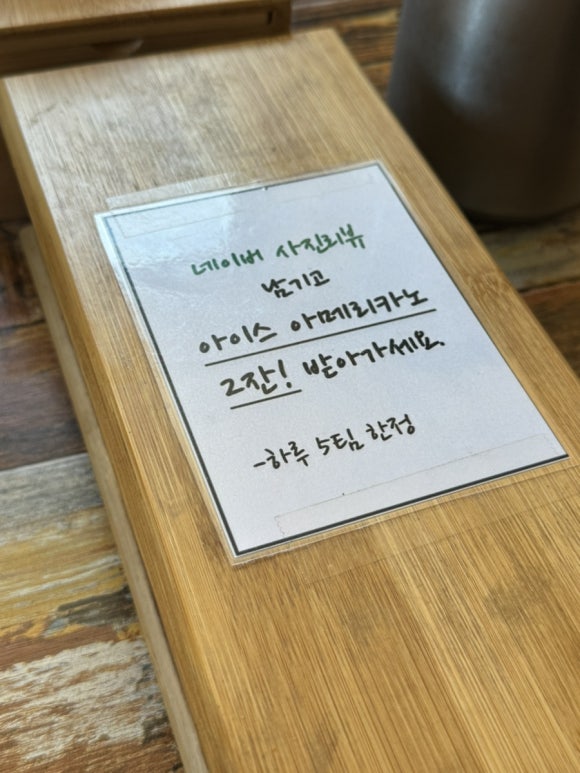 네이버 사진리뷰
남기고
아이스 아메리카노
2잔! 받아가세요.
-하루 5팀 한정